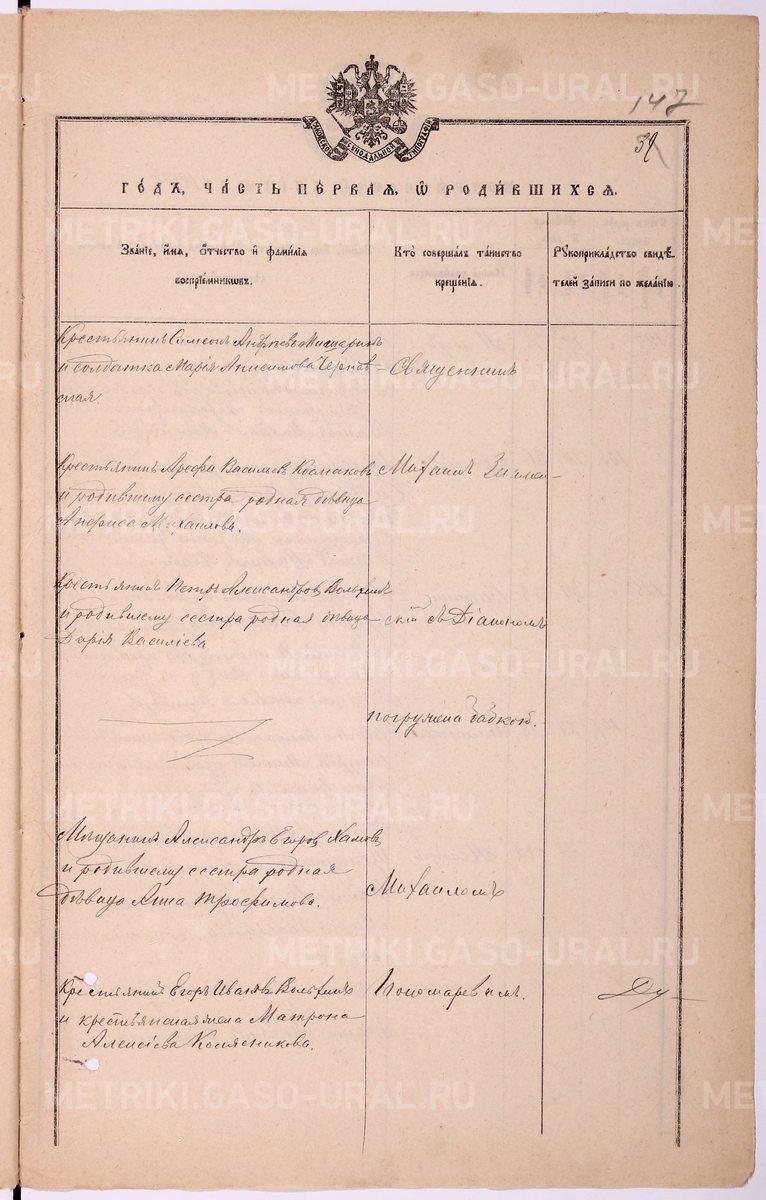 METRIKI.GASO-URAL.RU
147
39
МОСКОВСКОЙ СѴНОДАЛЬНОЙ ТИПОГРАФІИ
ГОДЪ, ЧАСТЬ ПЕРВАЯ, Ѡ РОДИВШИХСЯ.
Званіе, имя, отчество и фамилія
воспріемниковъ.
Кто совершалъ таинство
крещенія.
Рукоприкладство свидѣ-
телей записи по желанію.
Крестьянинъ Симеонъ Андреевъ
и солдатка Марія Анисимова Чернав-
ская.
Священникъ
Крестьянинъ Арефа Васильевъ Колмаковъ
и родившему сестра родная дѣвица
Анфиса Михаилова.
Михаилъ
Крестьянинъ Петръ Александровъ Волхинъ
и родившему сестра родная дѣвица
Дарія Василіева
скій съ Діакономъ
погружена бабкой.
Мѣщанинъ Александръ Егоровъ Хамовъ
и родившему сестра родная
дѣвица Анна Трофимова.
Михаиломъ
Крестьянинъ Егоръ Ивановъ Волхинъ
и крестьянская жена Матрона
Алексіева Колясникова.
Пономаревымъ.
METRIKI.GASO-URAL.RU